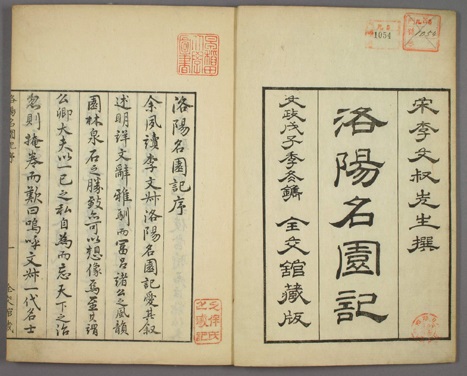 宋李文叔先生撰
洛陽名園記
文政戊子季冬鐫 全交舘藏版
1054
洛陽名園記序
余夙讀李文叔洛陽名園記愛其叙
述明詳文辭雅馴而冨呂諸公之風韻
園林泉石之勝致亦可以想像焉至其謂
公卿大夫以一已之私自為而忘天下之治
忽則掩卷而歎曰嗚呼文叔一代名士